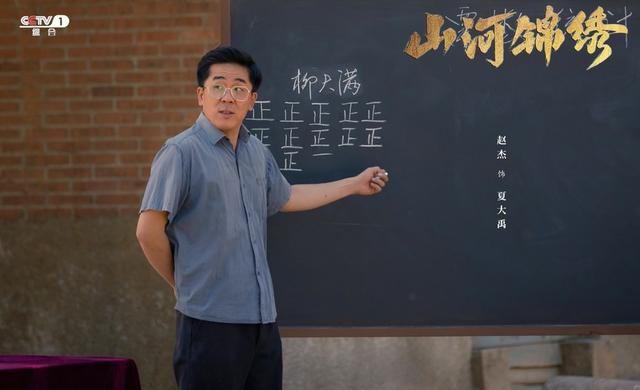 CCTV-1
综合
山河锦绣
柳大满
正 正 正 正 正
正 正 正 正 正
正 一
赵杰 饰 夏大禹